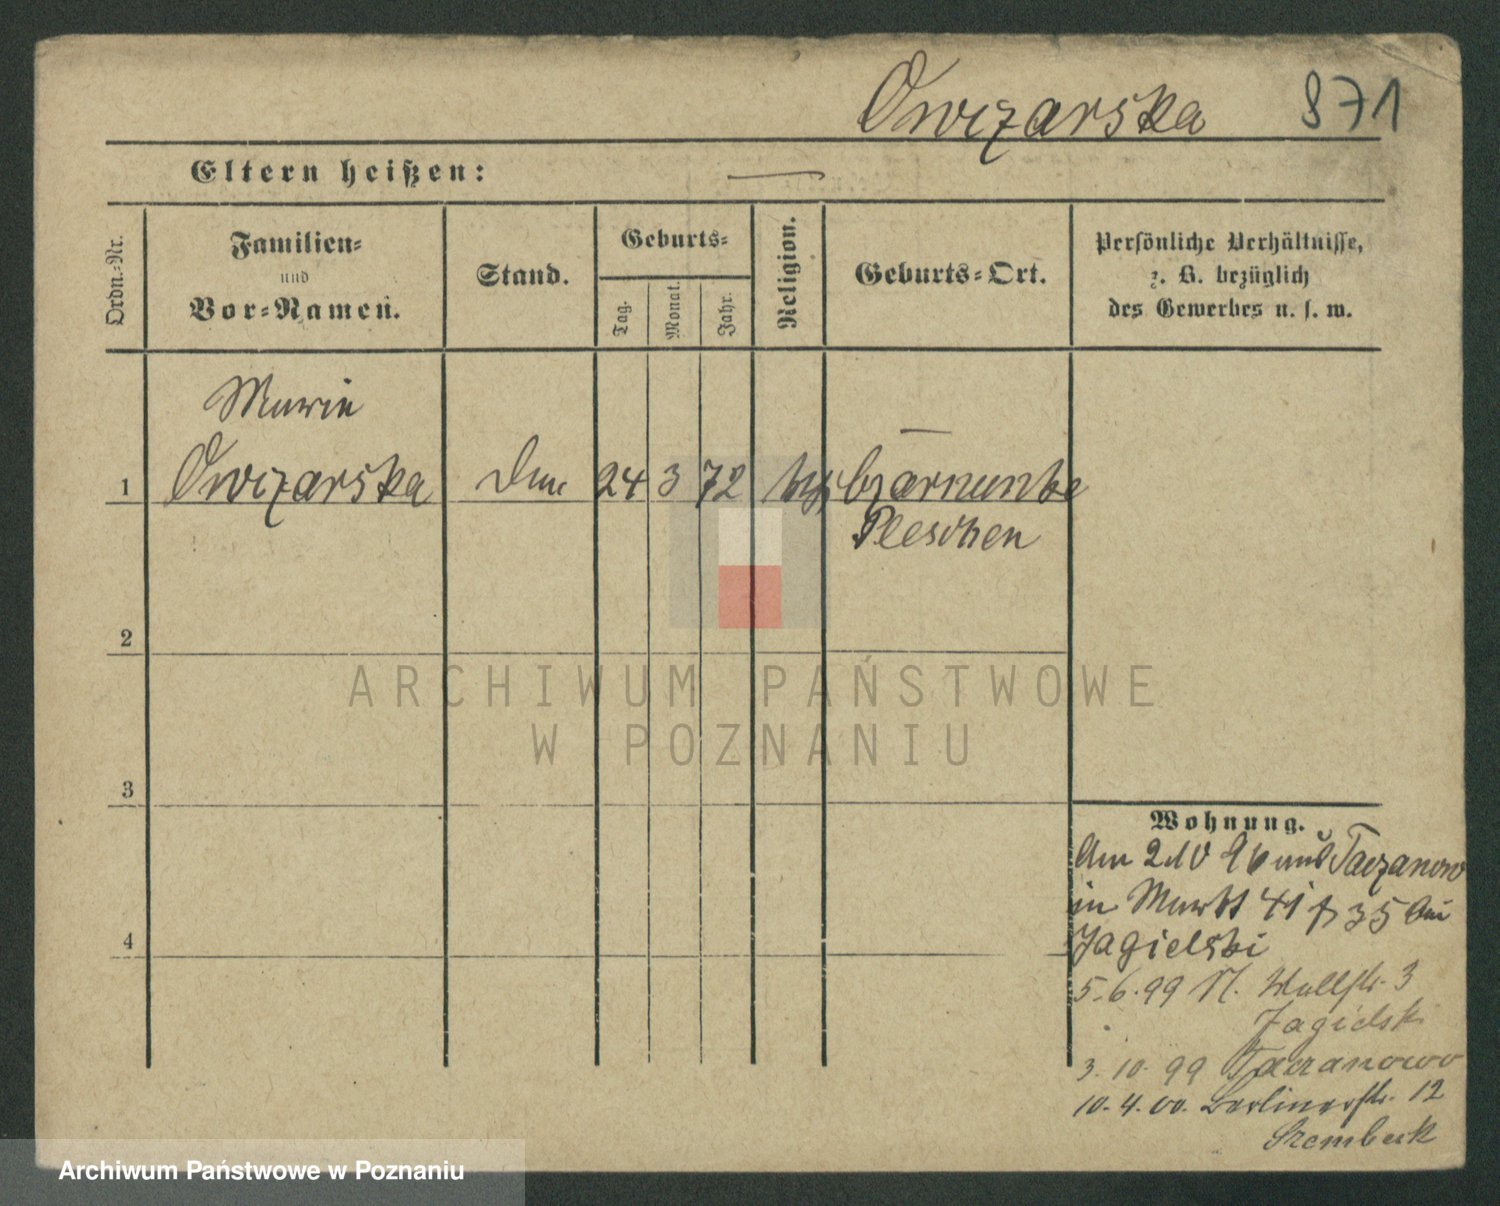 Owczarska 871
Eltern heißen: —
Ordn.-Nr.
Familien-
und
Vor-Namen.
Stand.
Geburts-
Tag.
Monat.
Jahr.
Religion.
Geburts-Ort.
Persönliche Verhältnisse,
z. B. bezüglich
des Gewerbes u. s. w.
Marie
1 Owczarska 24 3 72
Pleschen
2
3
4
Wohnung.
Am 2 10 96 aus Taczanowo
in Markt 41 35 bei
Jagielski
5.6.99 Wallstr. 3
Jagielski
3.10.99 Taczanowo
10.4.00. Berlinerstr. 12
Szembeck
ARCHIWUM PAŃSTWOWE
W POZNANIU
Archiwum Państwowe w Poznaniu